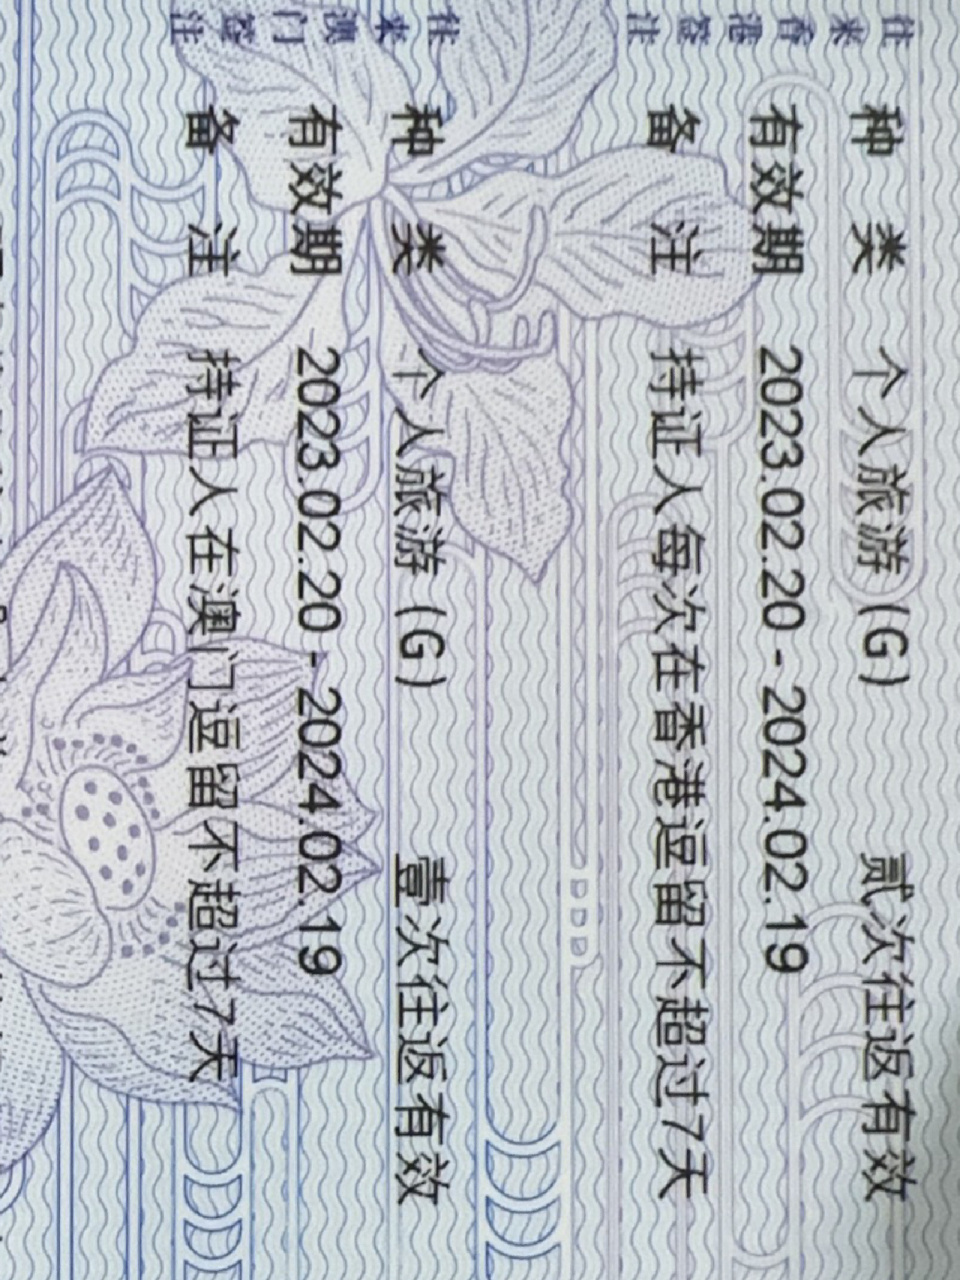 往来香港签注
种 类 个人旅游 (G) 贰次往返有效
有效期 2023.02.20 - 2024.02.19
备 注 持证人每次在香港逗留不超过7天
往来澳门签注
种 类 个人旅游 (G) 壹次往返有效
有效期 2023.02.20 - 2024.02.19
备 注 持证人在澳门逗留不超过7天